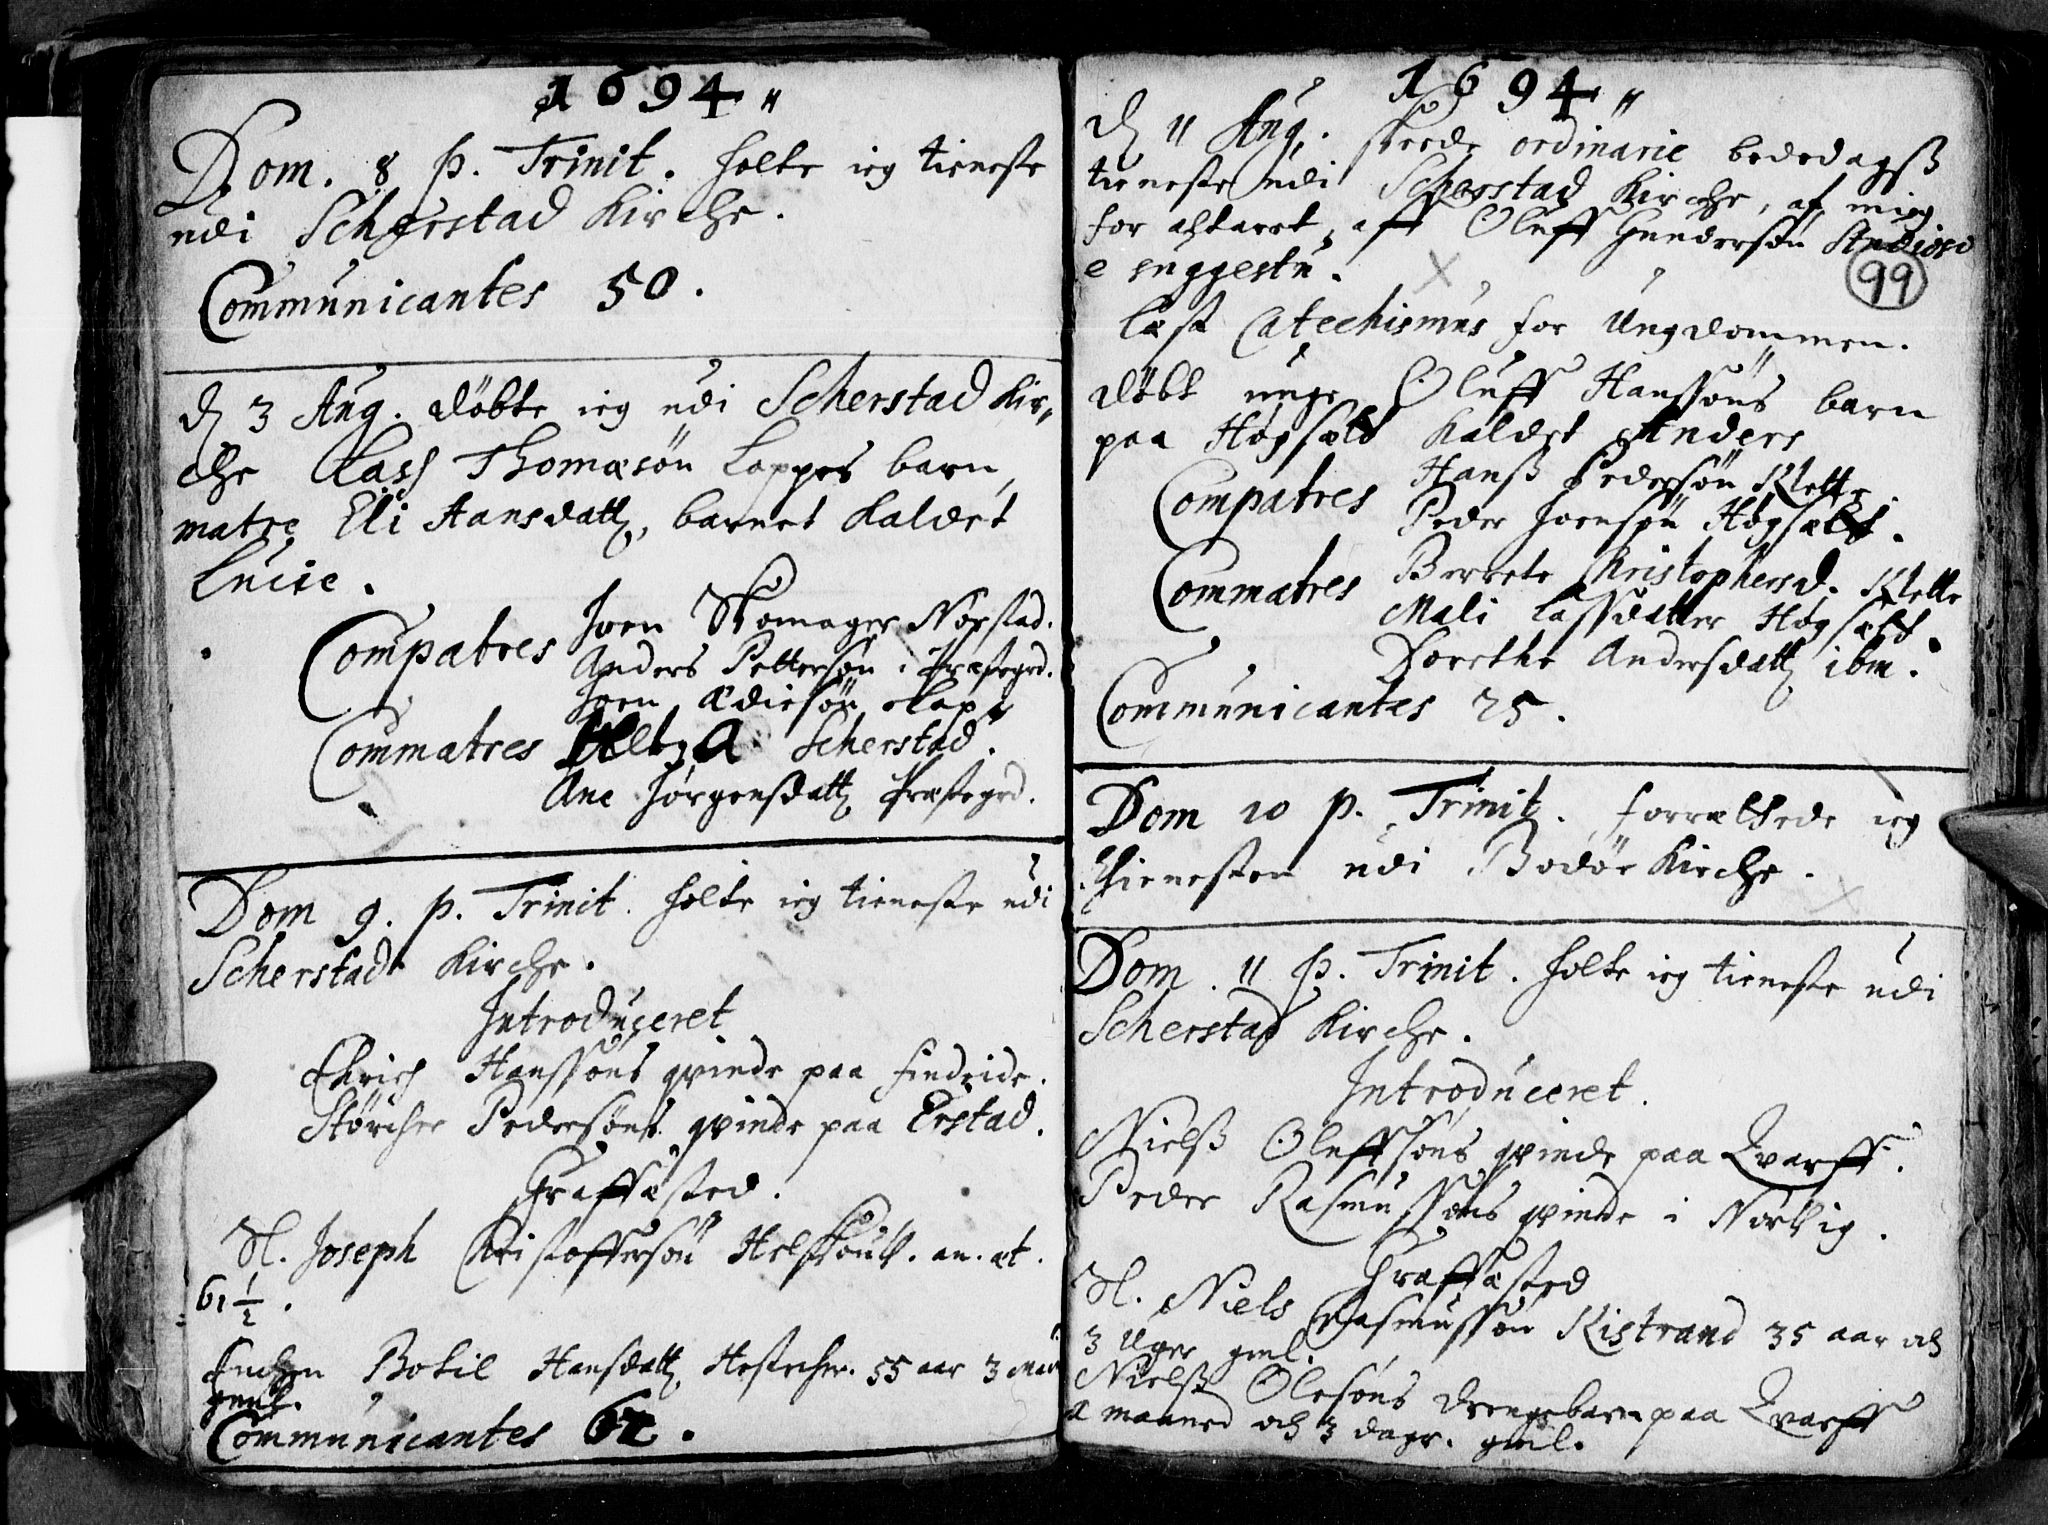 1694
Dom. 8 p. Trinit. holte ieg tieneste
udi Scherstad Kirche.
Communicantes 50.
d 3 Aug. döbte ieg udi Scherstad Kir,,
che Lass Thomæsön Lappes barn,
matre Eli Hansdatt, barnet kaldet
Lucie.
Compatres Joen Skomager Nopstad.
Anders Pettersøn i Præstegrd.
Joen Ædiesön Lap
Commatres A Scherstad.
Ane Jørgensdatt Præstegrd.
Dom 9. p. Trinit. holte ieg tieneste udi
Scherstad Kirche.
Introduceret
Ehrich Hanssöns qvinde paa Findeide.
Störcher Pedersöns qvinde paa Erstad.
Graffæsted.
Sl. Joseph Christoffersön an. æt.
61 1/2.
Enchen Botil Hansdatt 55 aar 3
geml.
Communicantes 62.
1694
d 11 Aug. skeede ordinarie bededagß
tieneste udi Scherstad Kirche, af mig
for altaret, aff Oluff Gundersøn Studioso
e suggestu.
99
læst Catechismus for Ungdommen.
döbt unge Oluff Hanssöns barn
paa Hogsælt kaldet Anders
Compatres Hanß Pedersön Klette.
Peder Joensøn Hogsælt.
Commatres Berrete Christophersd. Klette
Mali Lassdatter Hogsælt.
Dorethe Andersdatt ibm.
Communicantes 25.
Dom 10 p. Trinit. forrættede ieg
thienesten udi Bodöe Kirche.
Dom. 11 p. Trinit. holte ieg tieneste udi
Scherstad Kirche.
Introduceret.
Nielß Oluffsöns qvinde paa Qvarff.
Peder Rasmussöns qvinde i Norvig.
Graffæsted
Sl. Niels Rasmussøn Ristrand 35 aar och
3 Uger gml.
Nielß Olesöns drengebarn paa Qvarff
a maaned och 3 dage. gml.